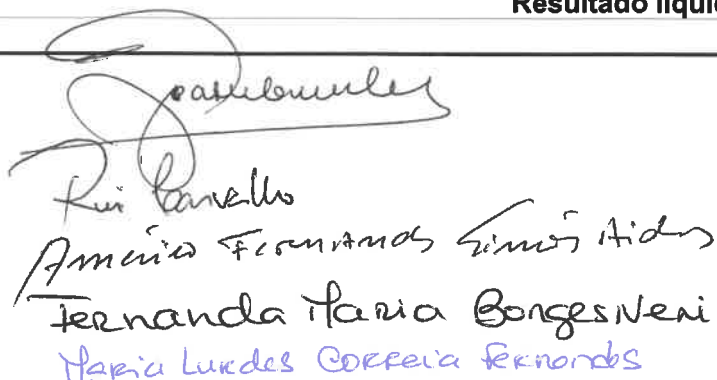 Resultado líqui
Rui Carvalho
Américo Fernando Simões Aido
Fernanda Maria Borges Neri
Maria Lurdes Correia Fernandes